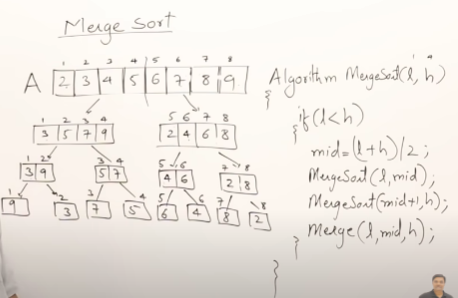 Merge Sort
1 2 3 4 5 6 7 8
A 2 3 4 5 6 7 8 9
1 2 3 4 5 6 7 8
3 5 7 9 2 4 6 8
1 2 3 4 5 6 7 8
3 9 5 7 4 6 2 8
1 2 3 4 5 6 7 8
9 3 7 5 6 4 8 2
Algorithm MergeSort(l, h)
{
if(l<h)
{
mid=(l+h)/2;
MergeSort(l,mid);
MergeSort(mid+1,h);
Merge(l,mid,h);
}
}